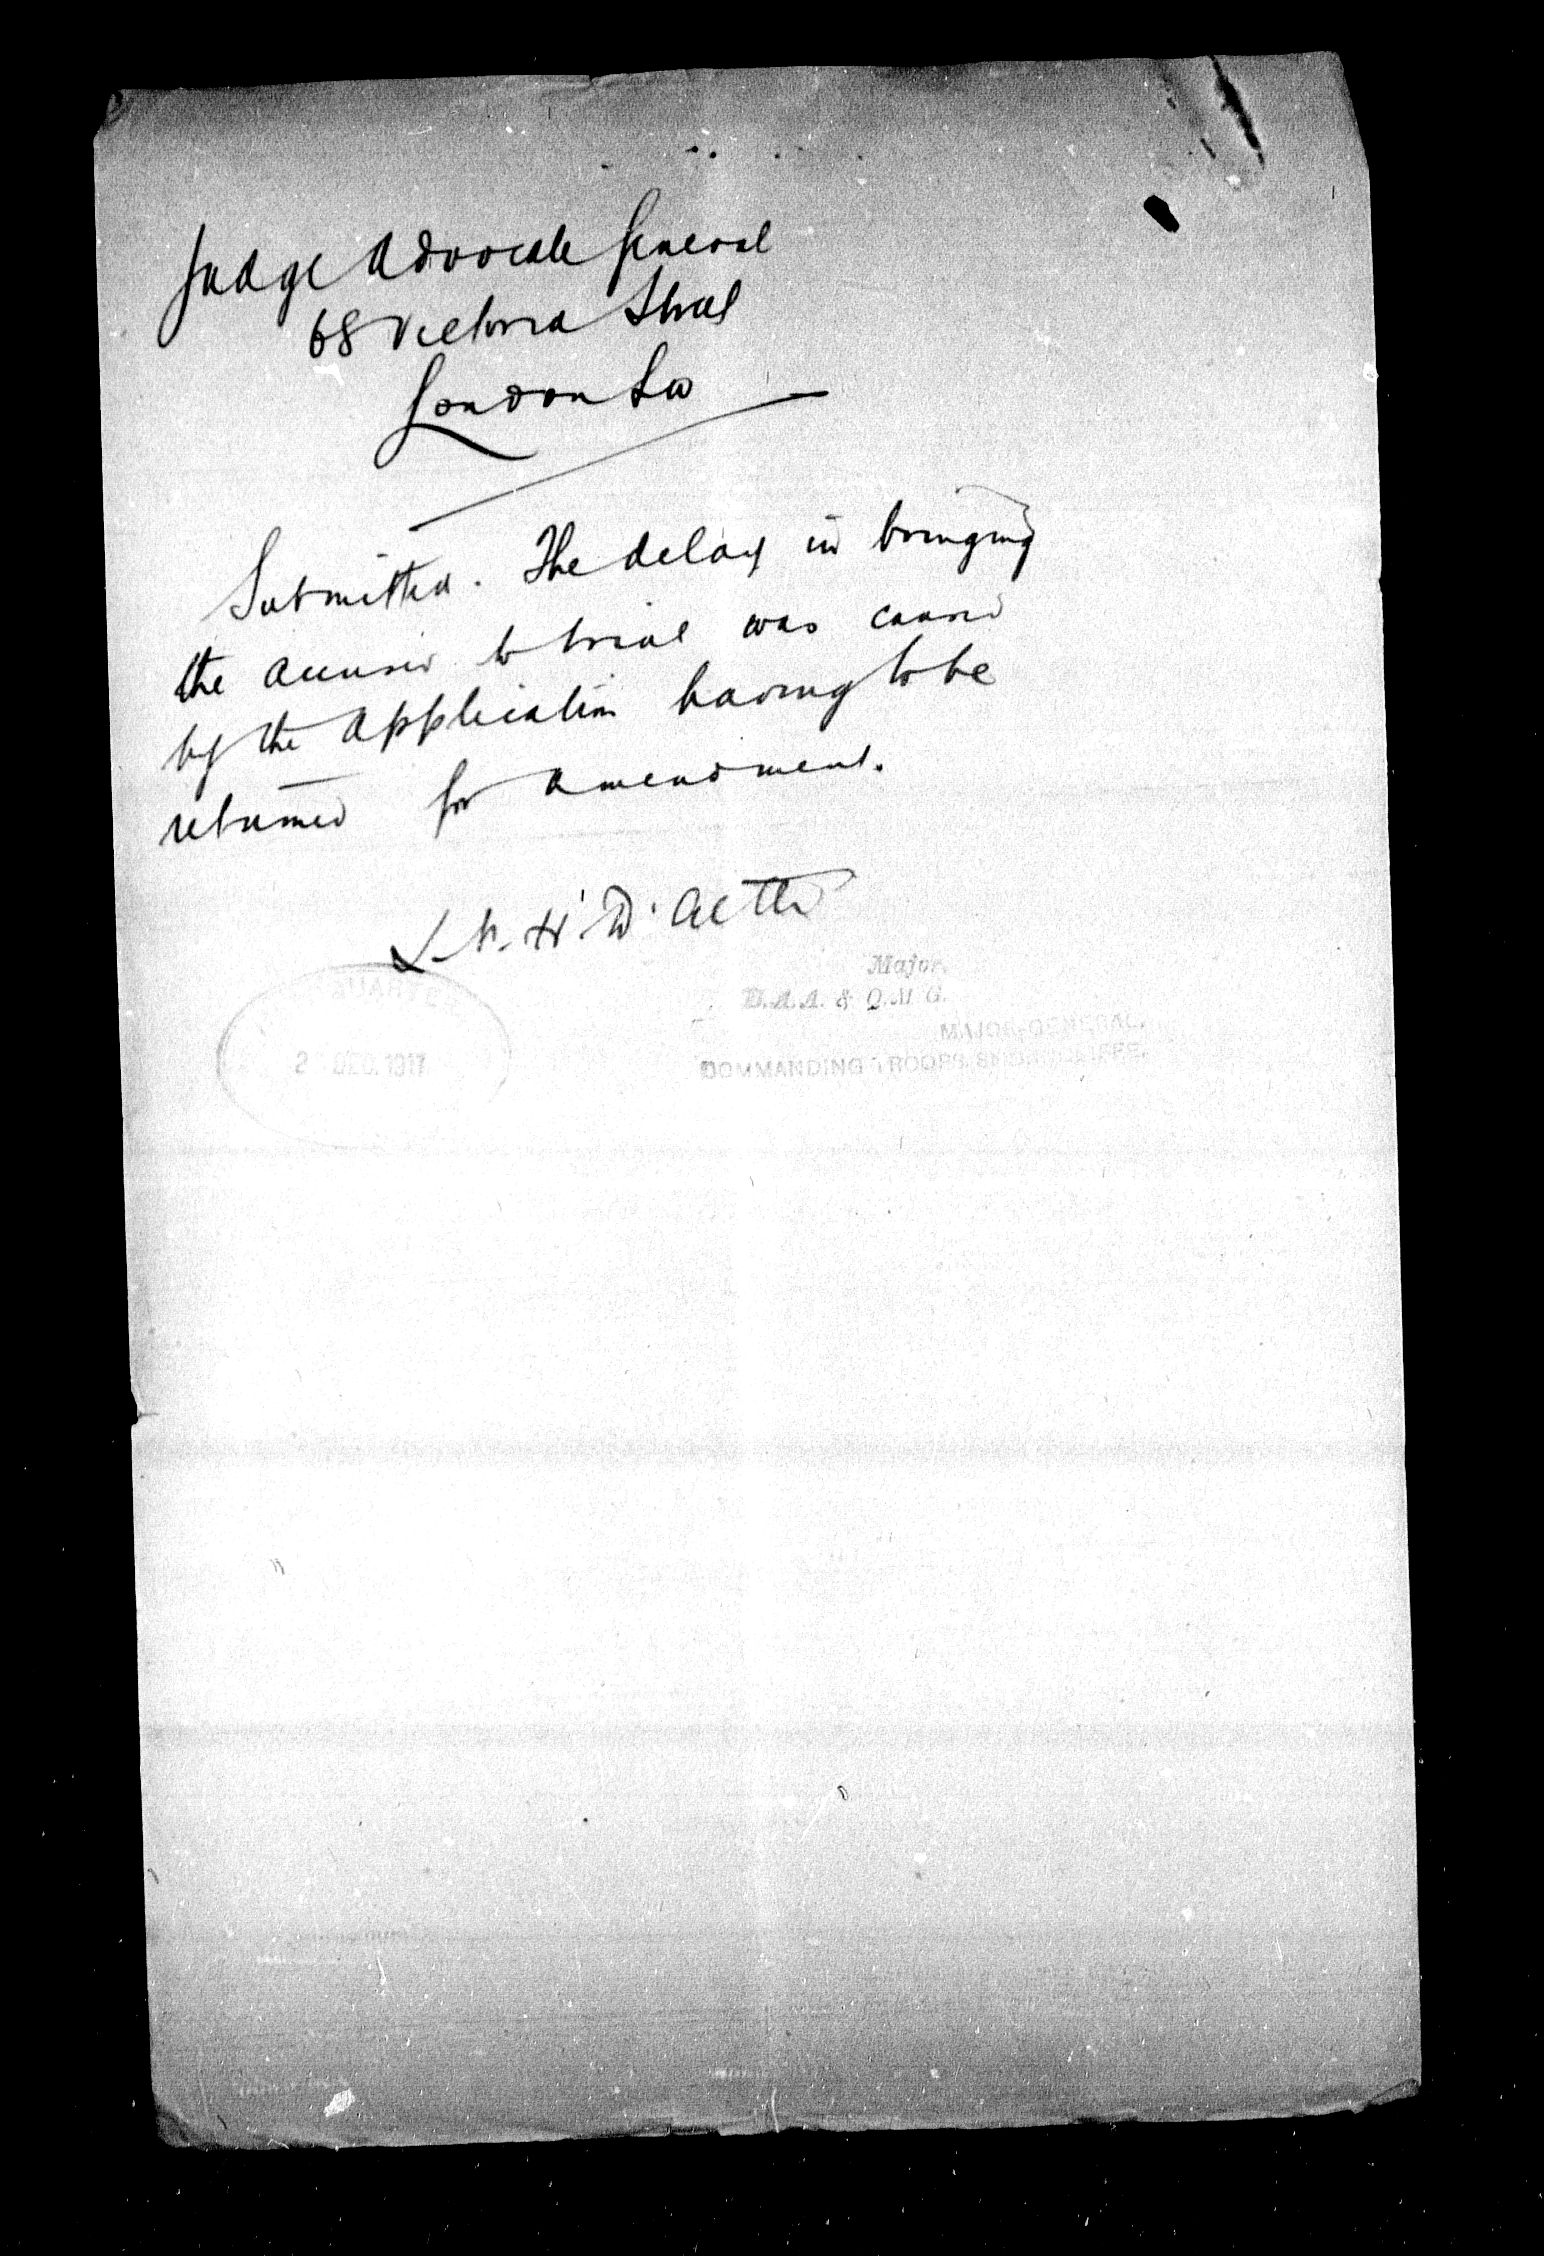 Judge Advocate General
68 Victoria Street
London SW
Submitted. The delay in bringing
the accused to trial was caused
by the application having to be
returned for amendment.
Major.
D.A.A. & Q.M.G.
MAJOR-GENERAL,
COMMANDING TROOPS, SHORNCLIFFE.
DEC. 1917